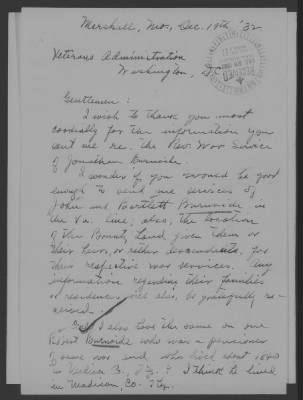 Marshall, Mo., Dec. 19th, '32
Veterans Administration
Washington, D.C.
RECEIVED
Gentlemen:
I wish to thank you most
cordially for the information you
sent me re. the Rev. War Service
of Jonathan Burnside.
I wonder if you would be good
enough to send me services of
John and Bartlett Burnside in
the Va. line; also, the location
of the Bounty Land given them or
their heirs, or rather descendants, for
their respective war services. Any
information regarding their families
or residences will also be gratefully re-
ceived.
May I also have the same on one
Robert Burnside who was a pensioner
of same war and who lived about 1840
in Co., Ky.? I think he lived
in Madison, Co. Ky.